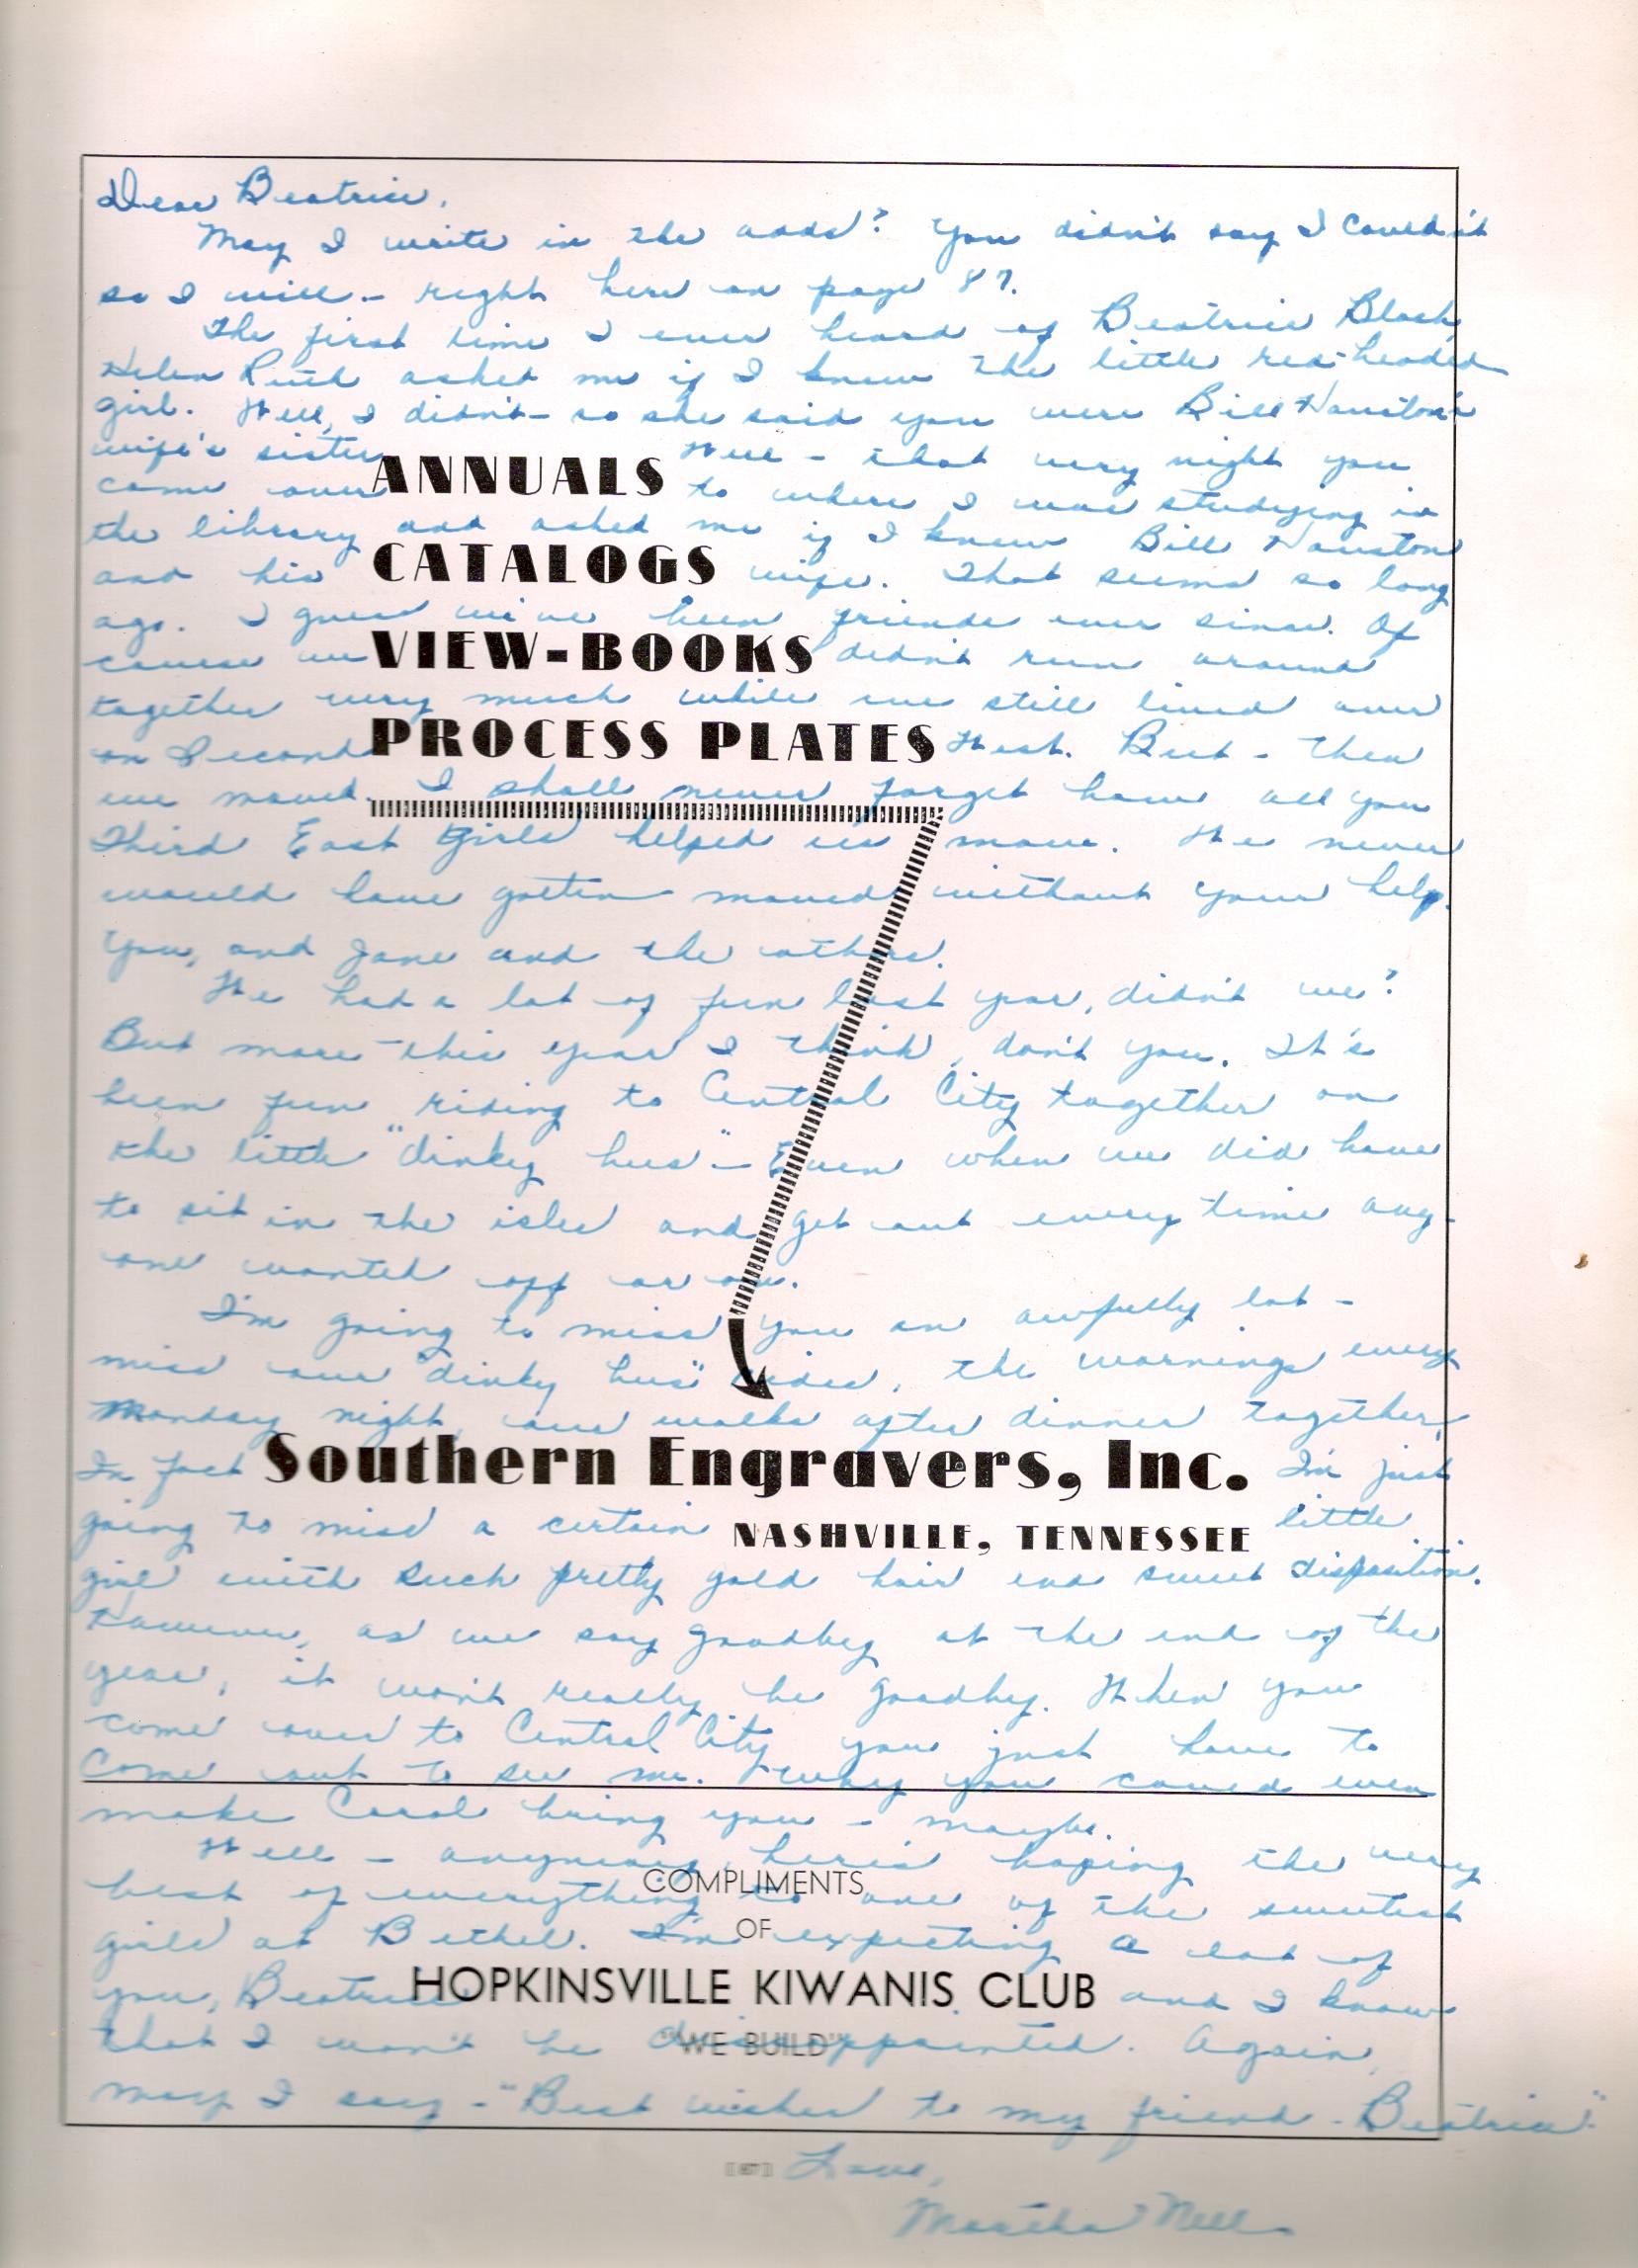 Dear Beatrice,
May I write in the adds? You didn't say I couldn't
so I will - right here on page 87.
The first time I ever heard of Beatrice Black,
Helen Ruth asked me if I knew the little red-headed
girl. Well, I didn't - so she said you were Bill Houston's
wife's sister. Well - that very night you
ANNUALS
came over to where I was studying in
the library and asked me if I knew Bill Houston
CATALOGS
and his wife. That seems so long
ago. I guess we've been friends ever since. Of
VIEW-BOOKS
course we didn't run around
together very much while we still lived over
PROCESS PLATES
on Second West. But - then
we moved. I shall never forget how all you
Third East Girls helped us move. We never
would have gotten moved without your help.
You, and Jane and the others.
We had a lot of fun last year, didn't we?
But more this year I think, don't you. It's
been fun riding to Central City together on
the little "dinky bus" - Even when we did have
to sit in the isles and get out every time any-
one wanted off or on.
I'm going to miss you an awfully lot -
miss our "dinky bus" rides, the warnings every
Monday night, our walks after dinner together,
In fact I'm just
Southern Engravers, Inc.
going to miss a certain little
NASHVILLE, TENNESSEE
girl with such pretty gold hair and sweet disposition.
However, as we say goodby at the end of the
year, it won't really be goodby. When you
come over to Central City you just have to
come out to see me. Why you could even
make Carol bring you - maybe.
Well - anyway, here's hoping the very
COMPLIMENTS
best of everything to one of the sweetest
OF
girls at Bethel. I'm expecting a lot of
HOPKINSVILLE KIWANIS CLUB
you, Beatrice and I know
"WE BUILD"
that I won't be disappointed. Again,
may I say - "Best wishes to my friend - Beatrice."
[87]
Love,
Martha Nell